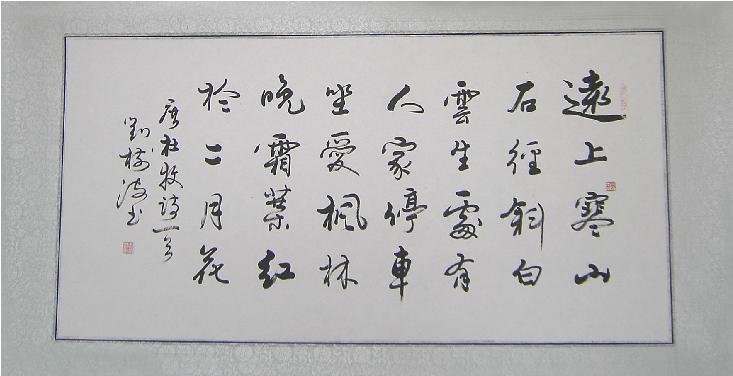 遠上寒山
石徑斜白
雲生處有
人家停車
坐愛楓林
晚霜葉紅
於二月花
唐杜牧詩一首
劉樹波书